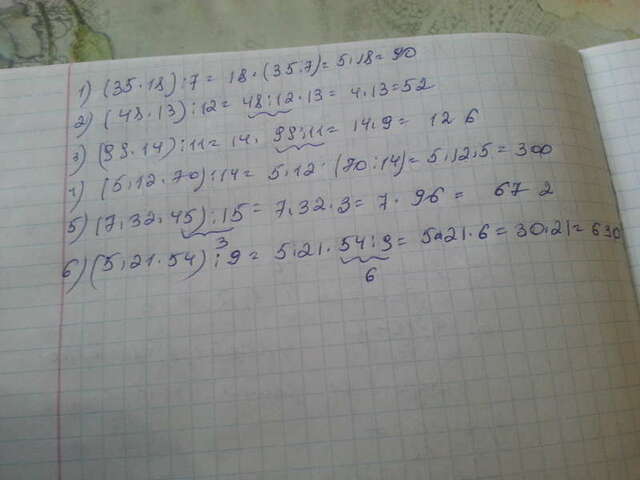 1) (35·18):7= 18·(35·7)=5·18=90
2) (48·13):12= 48:12·13= 4·13=52
3) (99·14):11= 14· 99:11= 14·9= 126
4) (5·12·70):14= 5·12·(70:14)=5·12·5=300
5) (7·32·45):15= 7·32·3=7·96= 672
3
6) (5·21·54):9= 5·21·54:9= 5·21·6=30·21=630
6